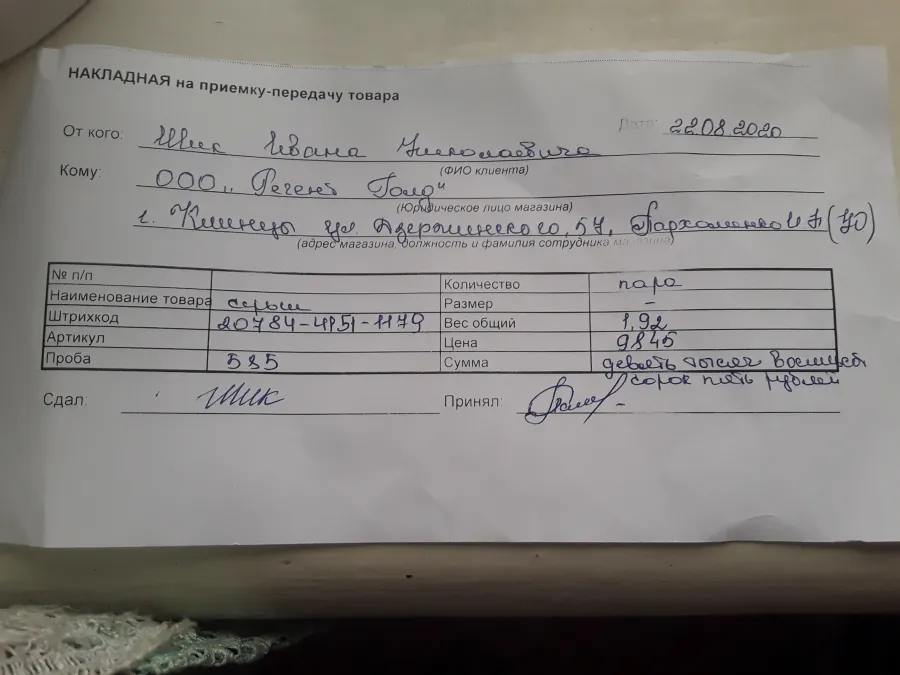 НАКЛАДНАЯ на приемку-передачу товара
Дата: 22.08.2020
От кого: Шик Ивана Николаевича
(ФИО клиента)
Кому: ООО „Регент Голд"
(Юридическое лицо магазина)
г. Клинцы ул. Дзержинского, 57, Пархоменко И А (УО)
(адрес магазина, должность и фамилия сотрудника магазина)
№ п/п Количество пара
Наименование товара серьги Размер –
Штрихкод 20784-4151-1179 Вес общий 1,92
Артикул Цена 9845
Проба 585 Сумма девять тысяч восемьсот
сорок пять рублей
Сдал: Шик Принял: